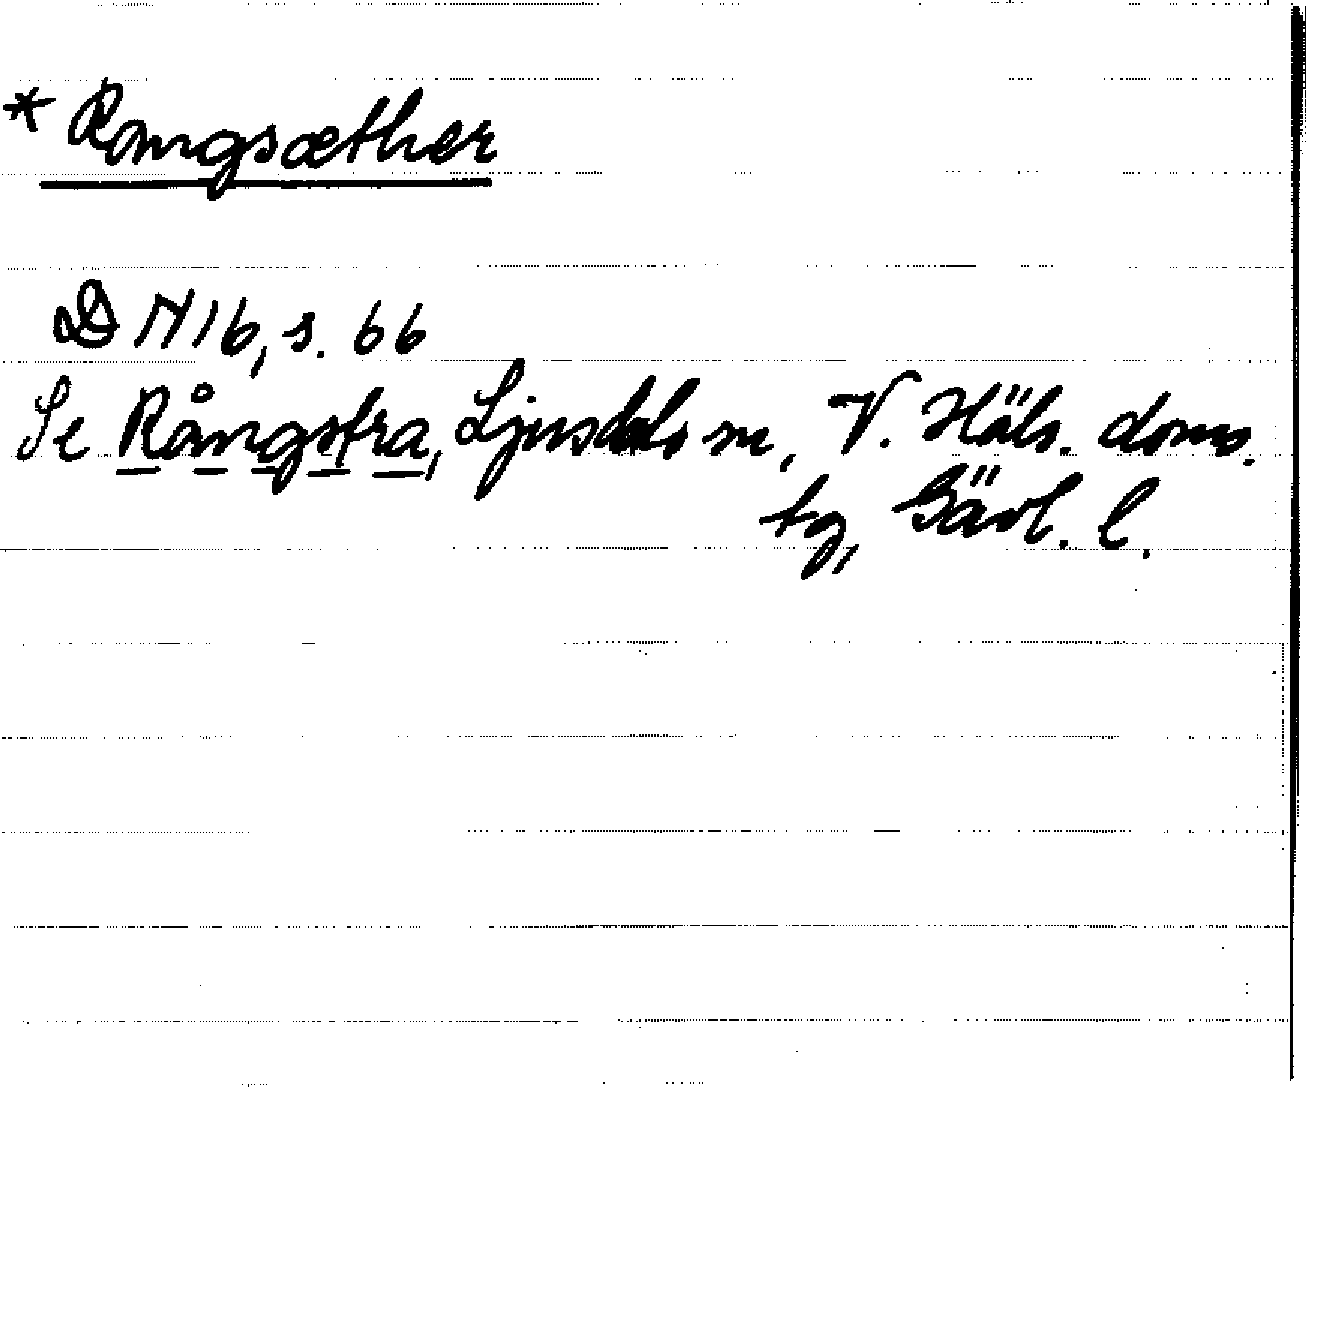 * Rongsæther
DN 16, s. 66
Se Rångstra, Ljusdals sn, V. Häls. doms.
tg, Gävl. l.